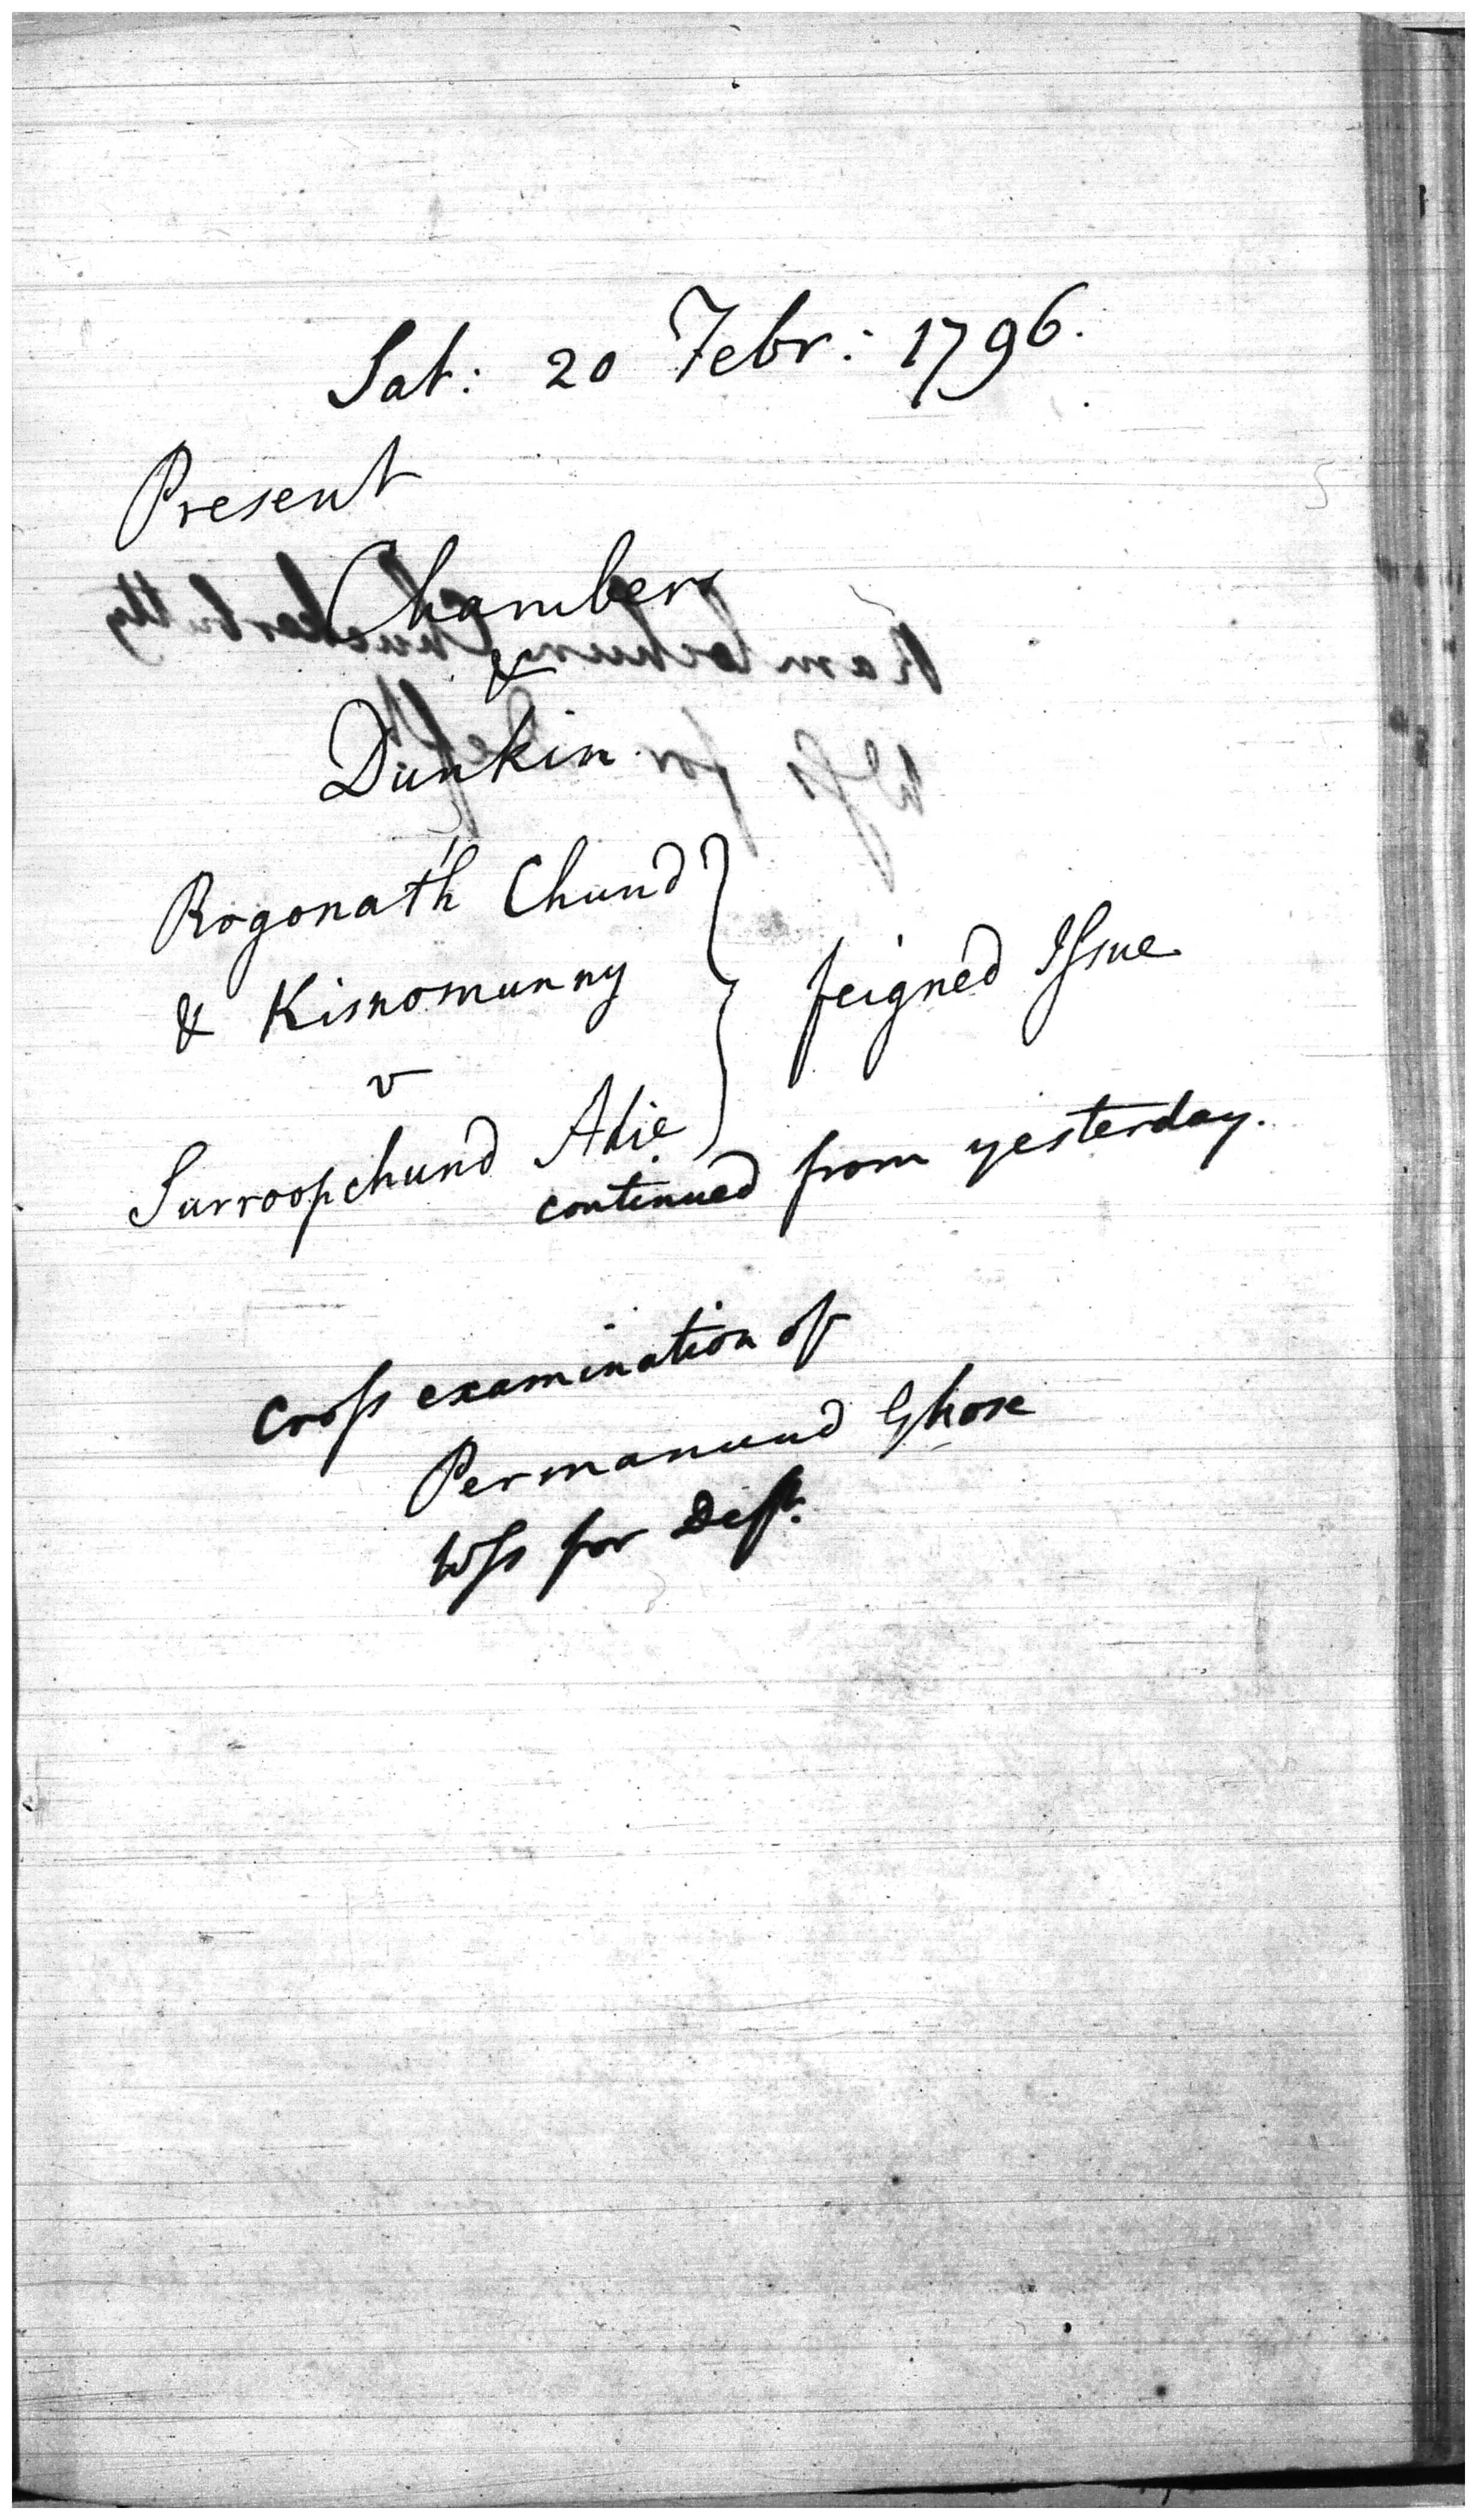 Sat: 20 Febr: 1796.
Present
Chambers
&
Dunkin
Rogonath Chund
& Kisnomunny
feigned Issue
v
Surroopchund Adie
continued from yesterday.
Cross examination of
Permanund Ghose
Wss for Deft.